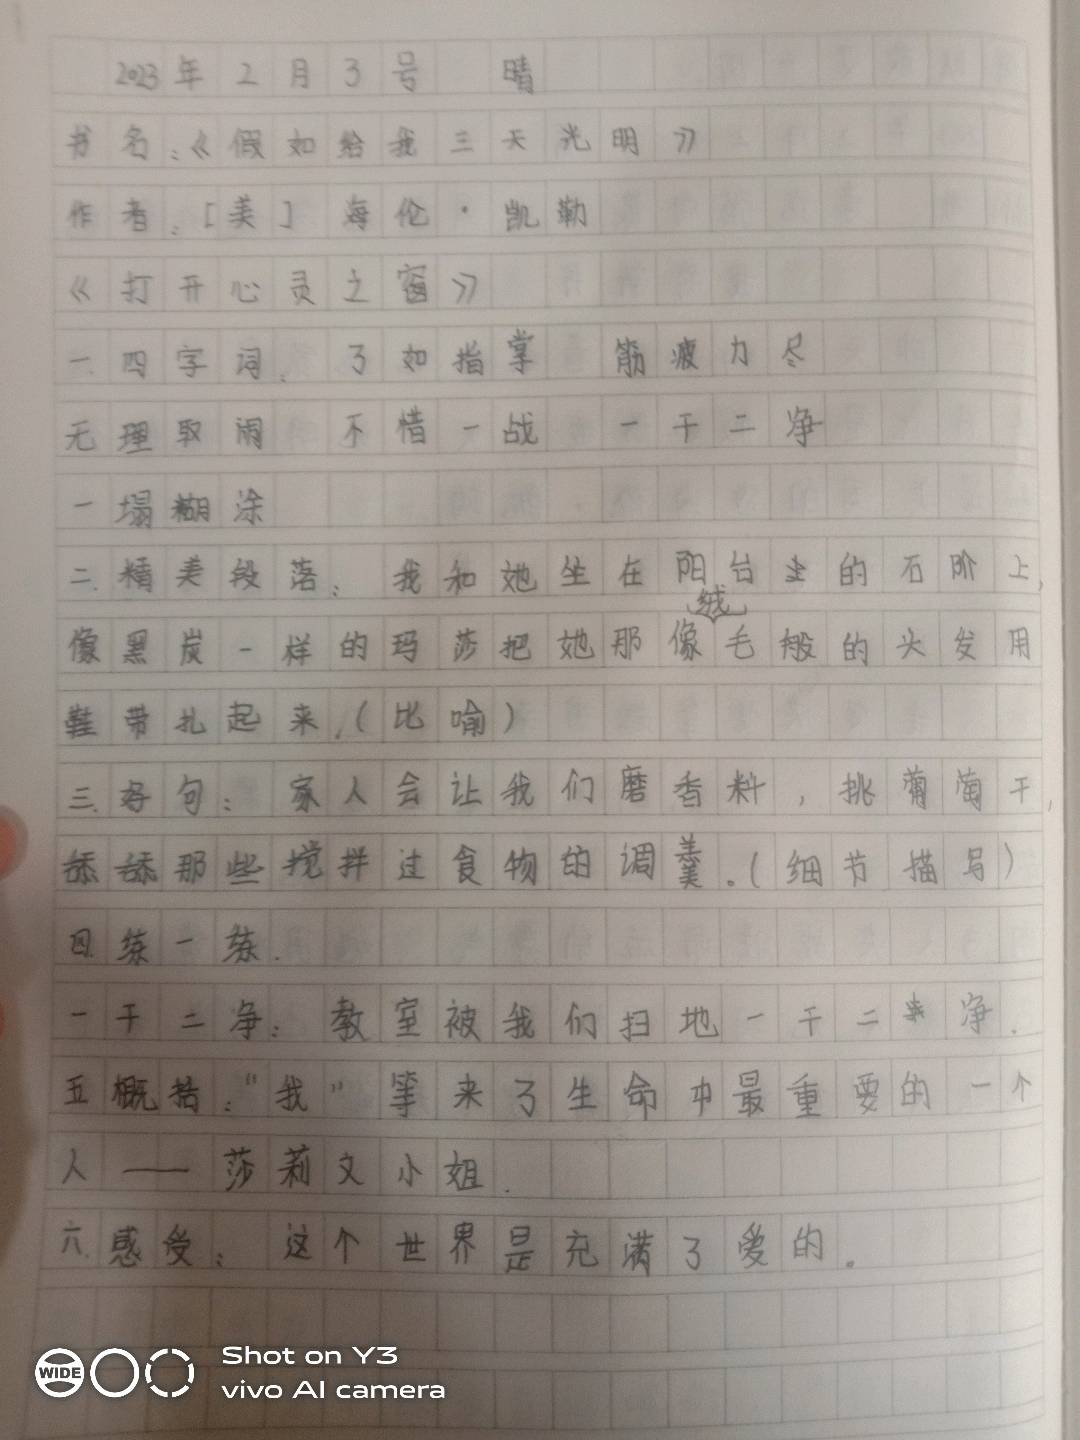 2023年2月3号 晴
书名:《假如给我三天光明》
作者:[美] 海伦·凯勒
《打开心灵之窗》
一.四字词. 了如指掌 筋疲力尽
无理取闹 不惜一战 一干二净
一塌糊涂
二.精美段落: 我和她坐在阳台尘的石阶上,
绒
像黑炭一样的玛莎把她那像毛般的头发用
鞋带扎起来.(比喻)
三.好句: 家人会让我们磨香料,挑葡萄干,
舔舔那些搅拌过食物的调羹。(细节描写)
四.练一练.
一干二净: 教室被我们扫地一干二净.
五概括:“我”等来了生命中最重要的一个
人——莎莉文小姐.
六.感受: 这个世界是充满了爱的。
WIDE
Shot on Y3
vivo AI camera